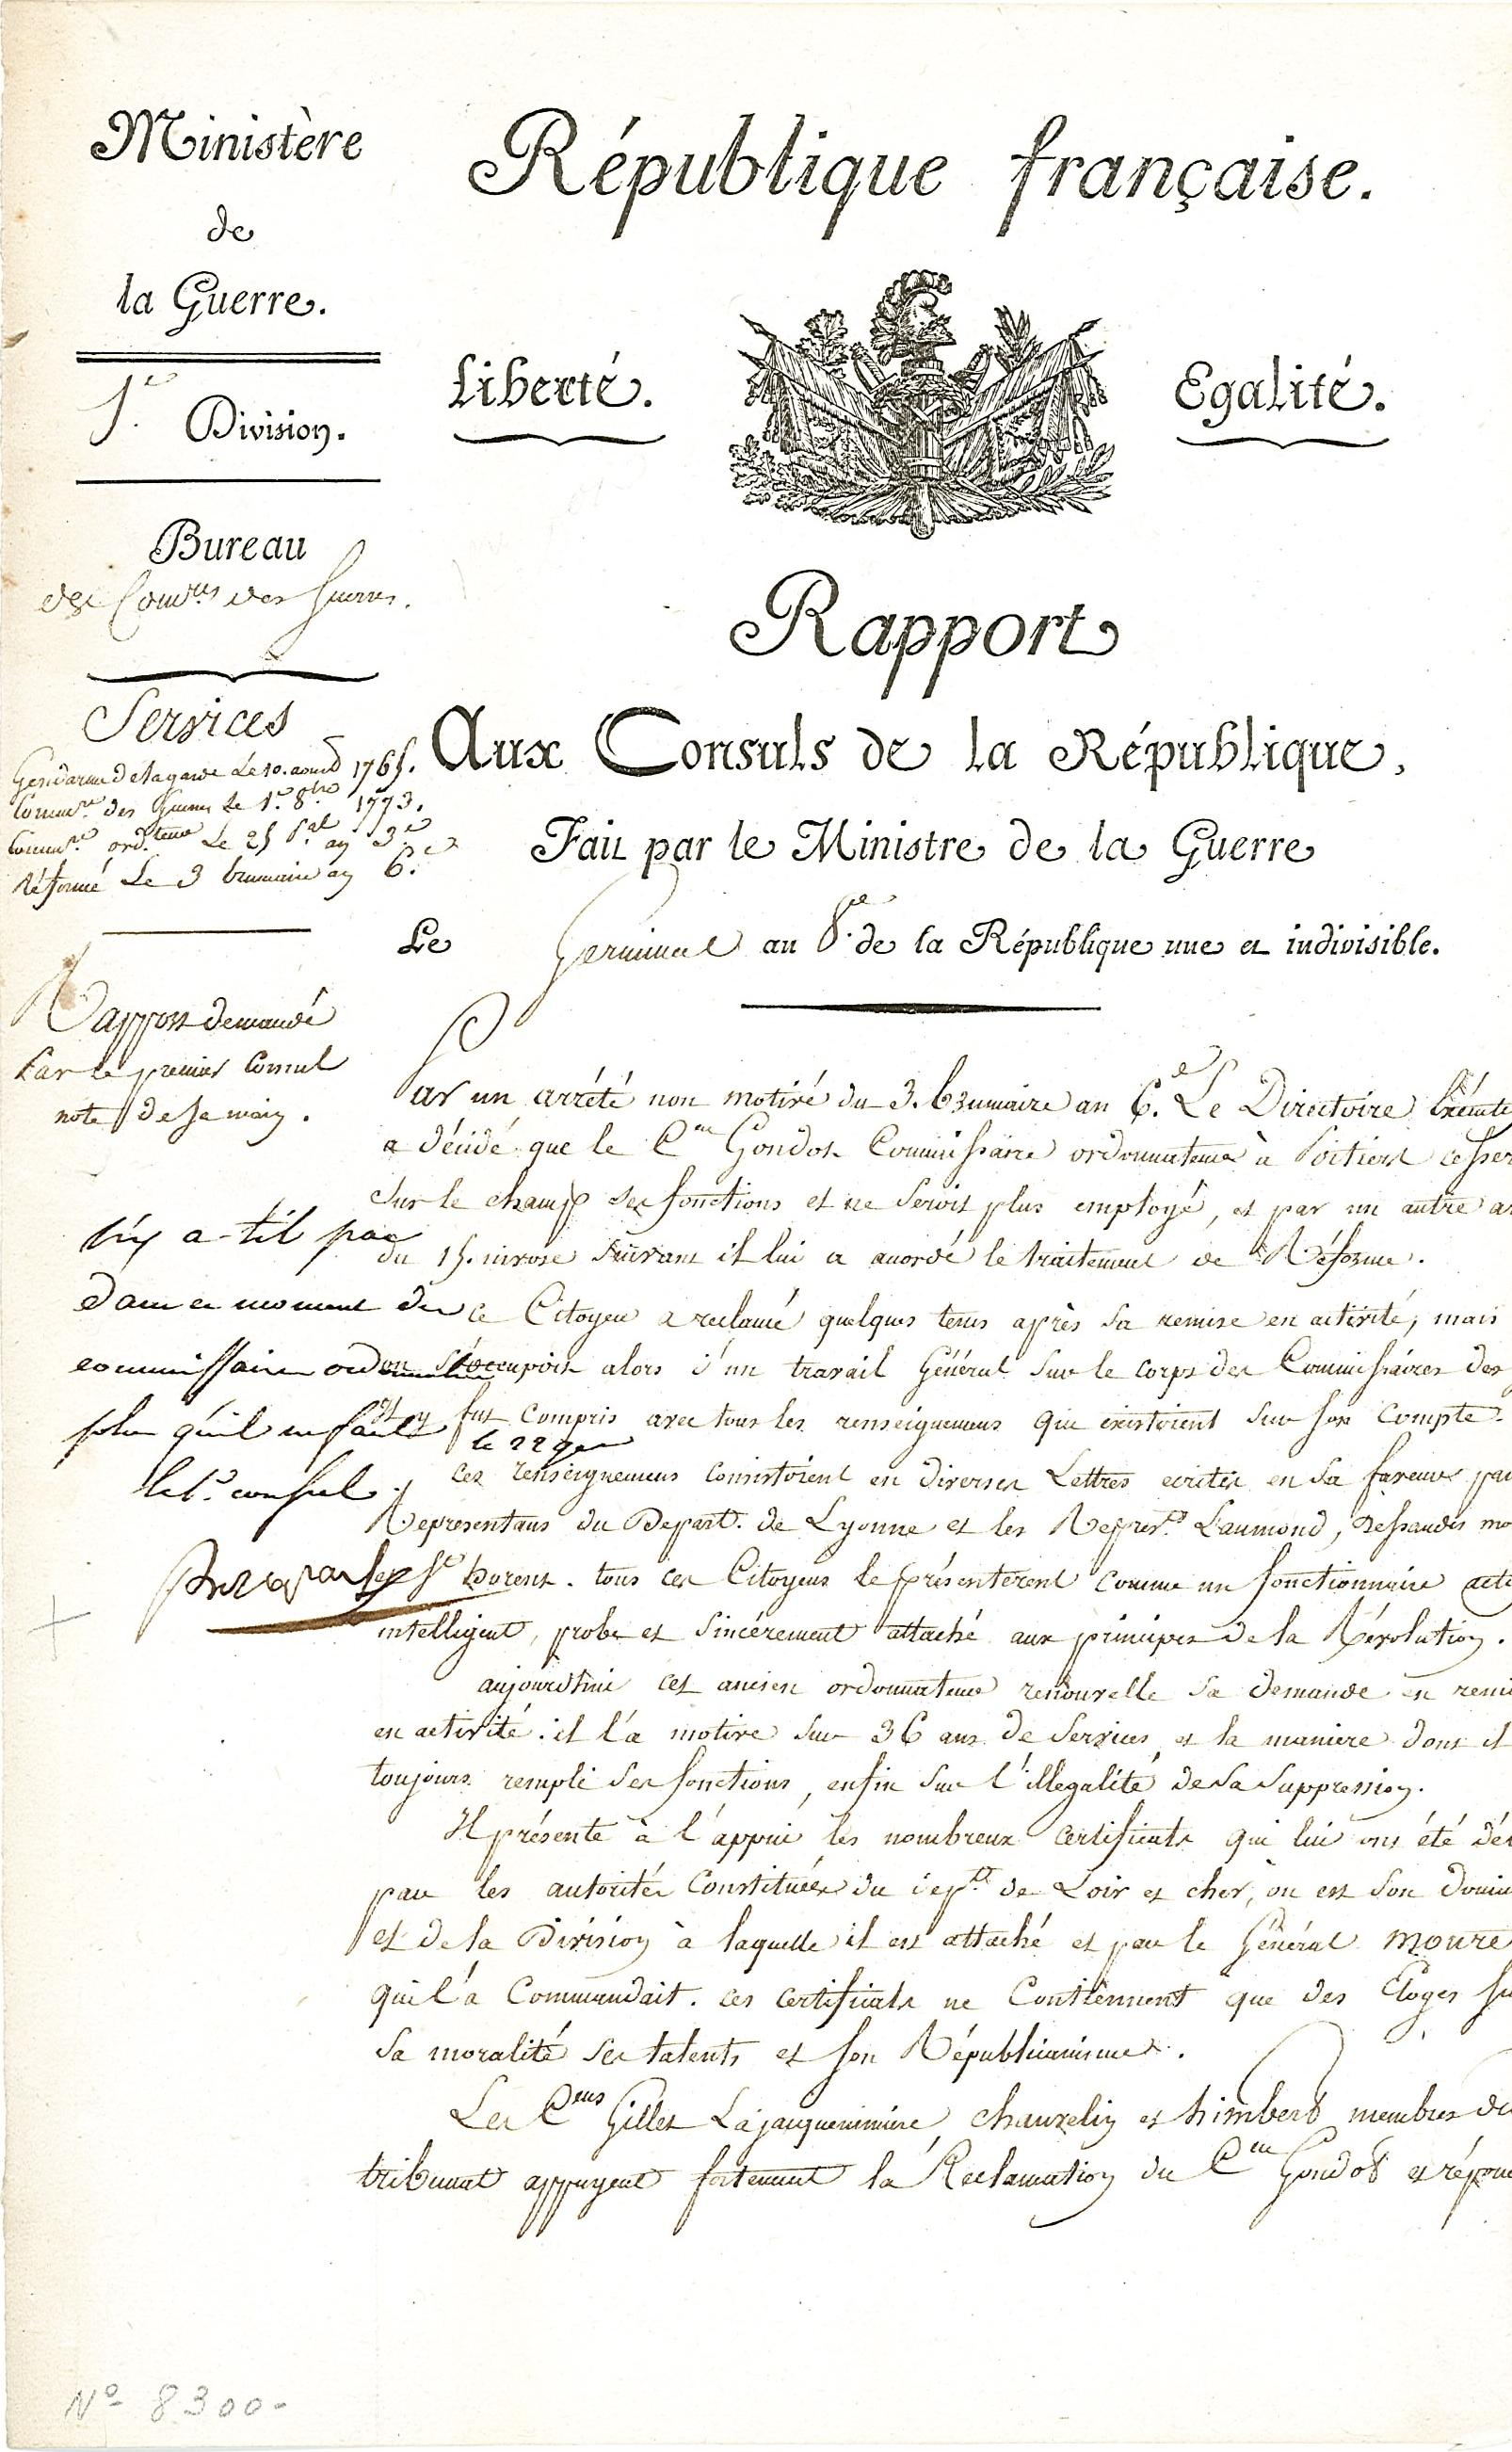 Ministère
de
la Guerre.
5.e Division.
Bureau
des Comres des Guerres.
République française.
Liberté. Egalité.
Rapport
Aux Consuls de la République,
Fait par le Ministre de la Guerre
Le Germinal an 8.e de la République une et indivisible.
Services
Gendarme de la garde Le 10. aoust 1765.
Commre des Guerres Le 1.er 8bre 1773.
Commre ordteur Le 25 pal an 3.e
Réformé Le 3 brumaire an 6.e
Rapport demandé
Par le premier Consul
note de sa main.
n'y a-t'il pas
dans ce moment des
commissaires ordonnateurs
plus qu'il en faut
le 22 ger
le 1.er consul
Bonaparte
Par un arrêté non motivé du 3. brumaire an 6.e Le Directoire Exécut
a décidé que le C.en Gondot Commissaire ordonnateur à Poitiers cesser
Sur le champ ses fonctions et ne seroit plus employé, et par un autre a
du 15. nivose Suivant il lui a accordé le traitement de Réforme.
Ce Citoyen a réclamé quelques tems après sa remise en activité, mais
on s'occupoit alors d'un travail Général Sur le corps des Commissaires des
et y fut Compris avec tous les renseignemens qui existoient Sur son Compte.
ces renseignemens Consistoient en diverses Lettres ecrites en sa faveur pa
Representans du Depart.t de Lyonne et les Represt.s Laumond, Dessaudis mo
et horent. tous ces Citoyens le présenterent Comme un fonctionnaire acti
intelligent, probe et Sincérement attaché aux principes de la Révolution.
aujourd'hui cet ancien ordonnateur renouvelle sa demande en remi
en activité. il l'a motive Sur 36 ans de Services, et la maniere dont il
toujours rempli ses fonctions, enfin Sur l'illegalité de sa suppression.
Il présente à l'appui les nombreux Certificats qui lui ont été dé
par les autorités Constituées du dept.t de Loir et cher, ou est Son domic
et de la Division à laquelle il est attaché et par le Général moure
qui l'a Commandait. ces Certificats ne Contiennent que des Eloges su
Sa moralité ses talents et son Républicanisme.
Les C.ens Gillet Lajacqueminiere, chauvelin et himbert membres du
tribunat appuyent fortement la Réclamation du C.en Gondot et répon
N° 8300-